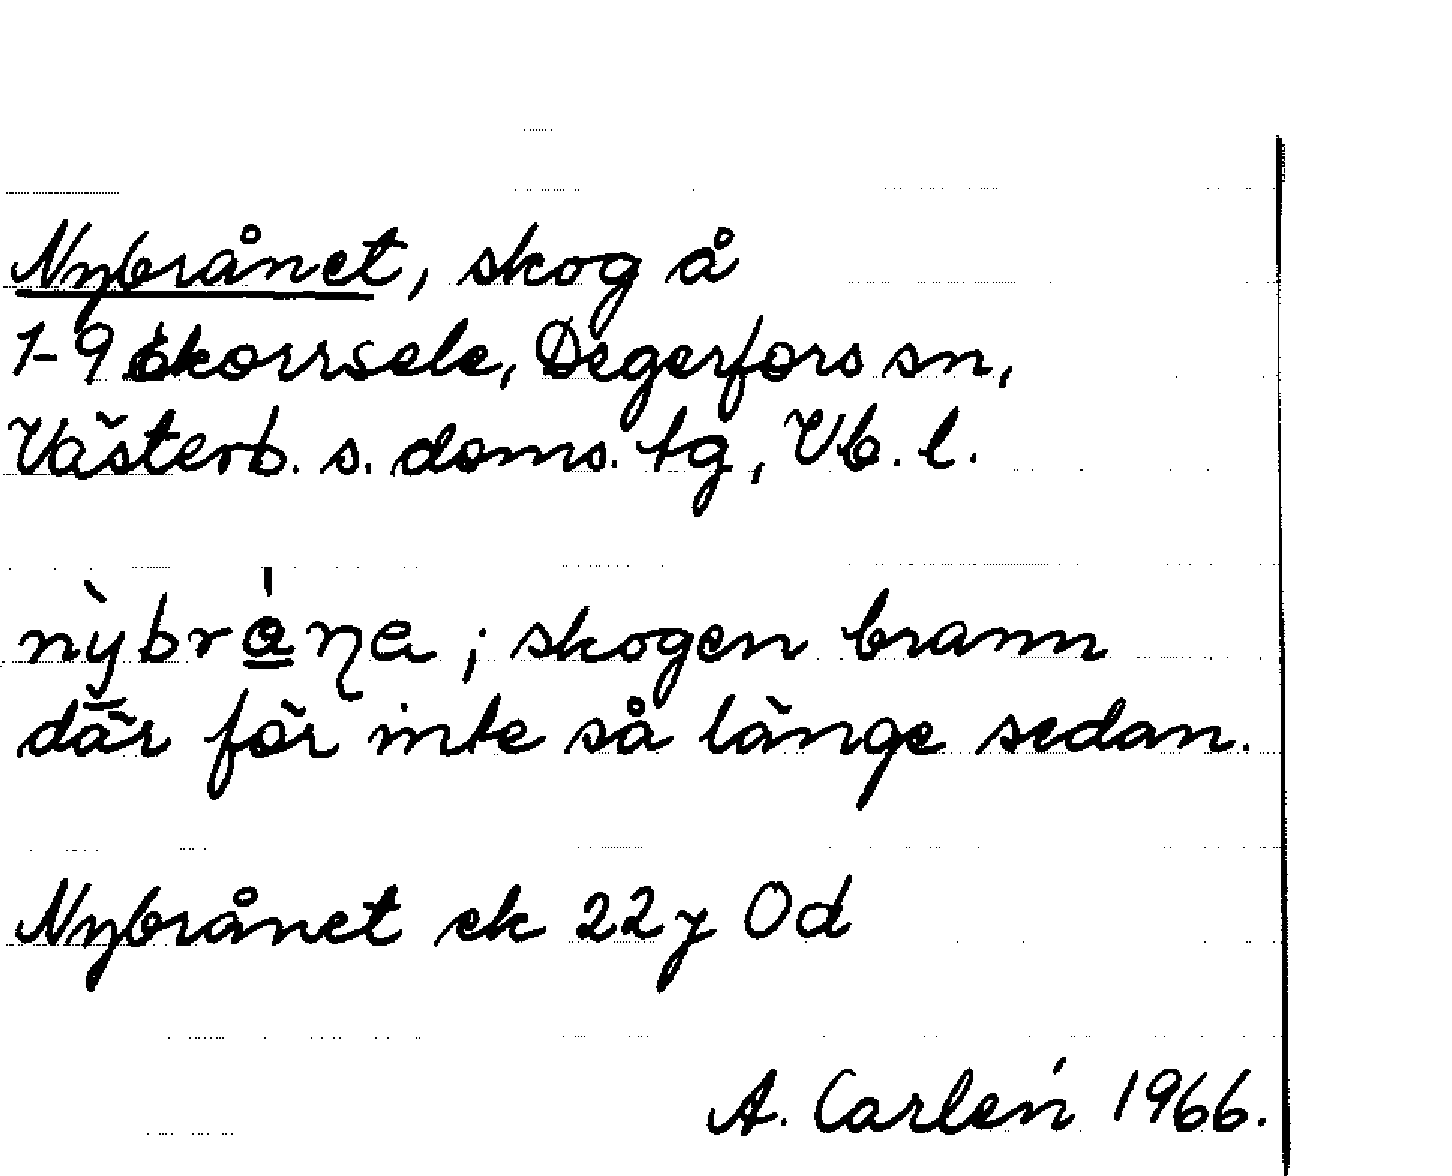 Nybrånet, skog å
1-9 Ekorrsele, Degerfors sn,
Västerb. s. doms. tg, Vb. l.
nỳbrånͅa ; skogen brann
där för inte så länge sedan.
Nybrånet ek 22y Od
A. Carlén 1966.